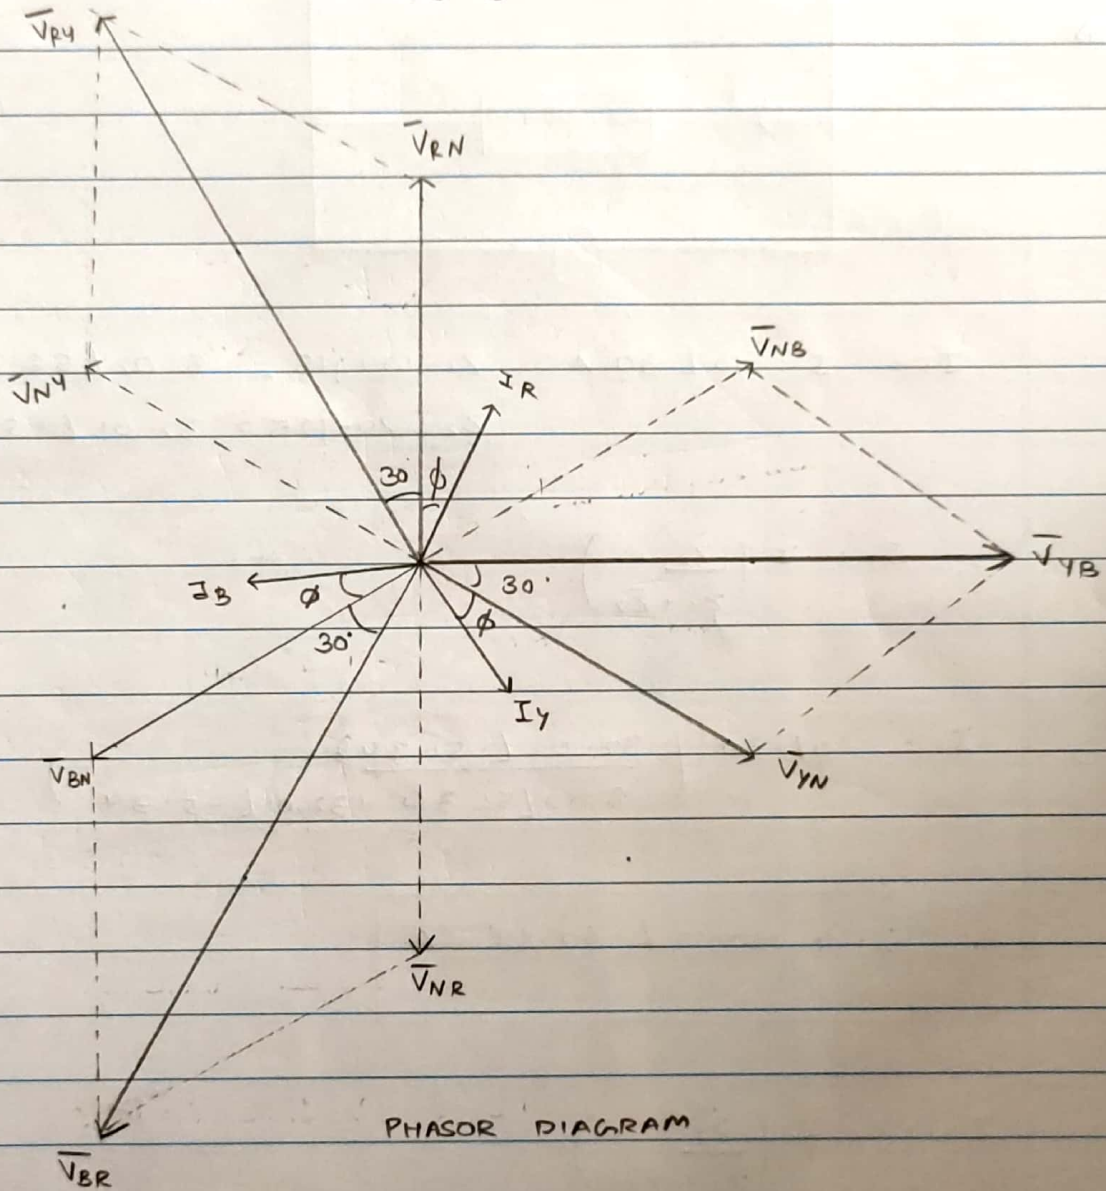 V̅RY
V̅RN
V̅NB
V̅NY
IR
30° ϕ
V̅YB
IB
ϕ
30°
ϕ
30°
IY
V̅BN
V̅YN
V̅NR
PHASOR DIAGRAM
V̅BR